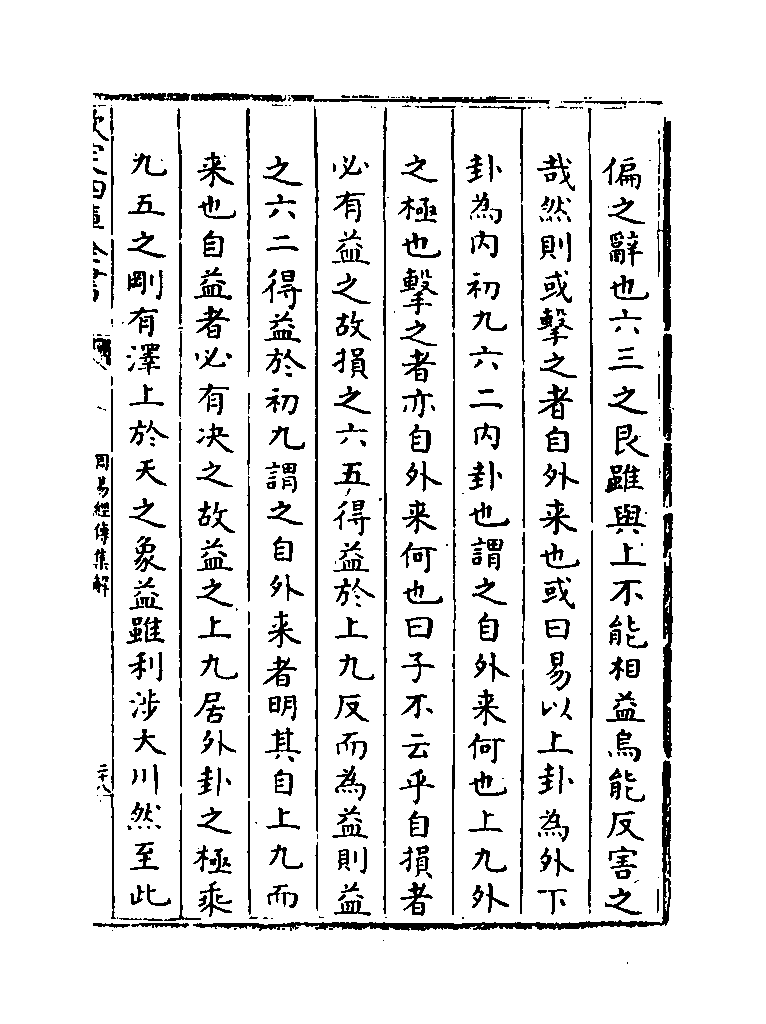 偏之辭也六三之艮雖與上不能相益烏能反害之
哉然則或擊之者自外来也或曰易以上卦為外下
卦為内初九六二内卦也謂之自外来何也上九外
之極也擊之者亦自外来何也曰子不云乎自損者
必有益之故損之六五得益於上九反而為益則益
之六二得益於初九謂之自外来者明其自上九而
来也自益者必有决之故益之上九居外卦之極乘
九五之剛有澤上於天之象益雖利涉大川然至此
欽定四庫全書
周易經傳集解
二十八